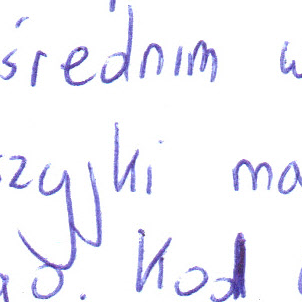 średnim w
szyjki ma
go. Kod